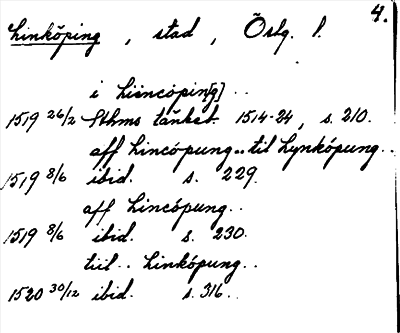 4.
Linköping, stad, Östg. l.
i Liencöpin[g] ..
1519 26/2 Sthms tänkeb. 1514-24, s. 210.
aff Lincöpung.. til Lynköpung..
1519 8/6 ibid. s. 229.
aff Lincöpung..
1519 8/6 ibid. s. 230.
tiil.. Linköpung..
1520 30/12 ibid. s. 316..